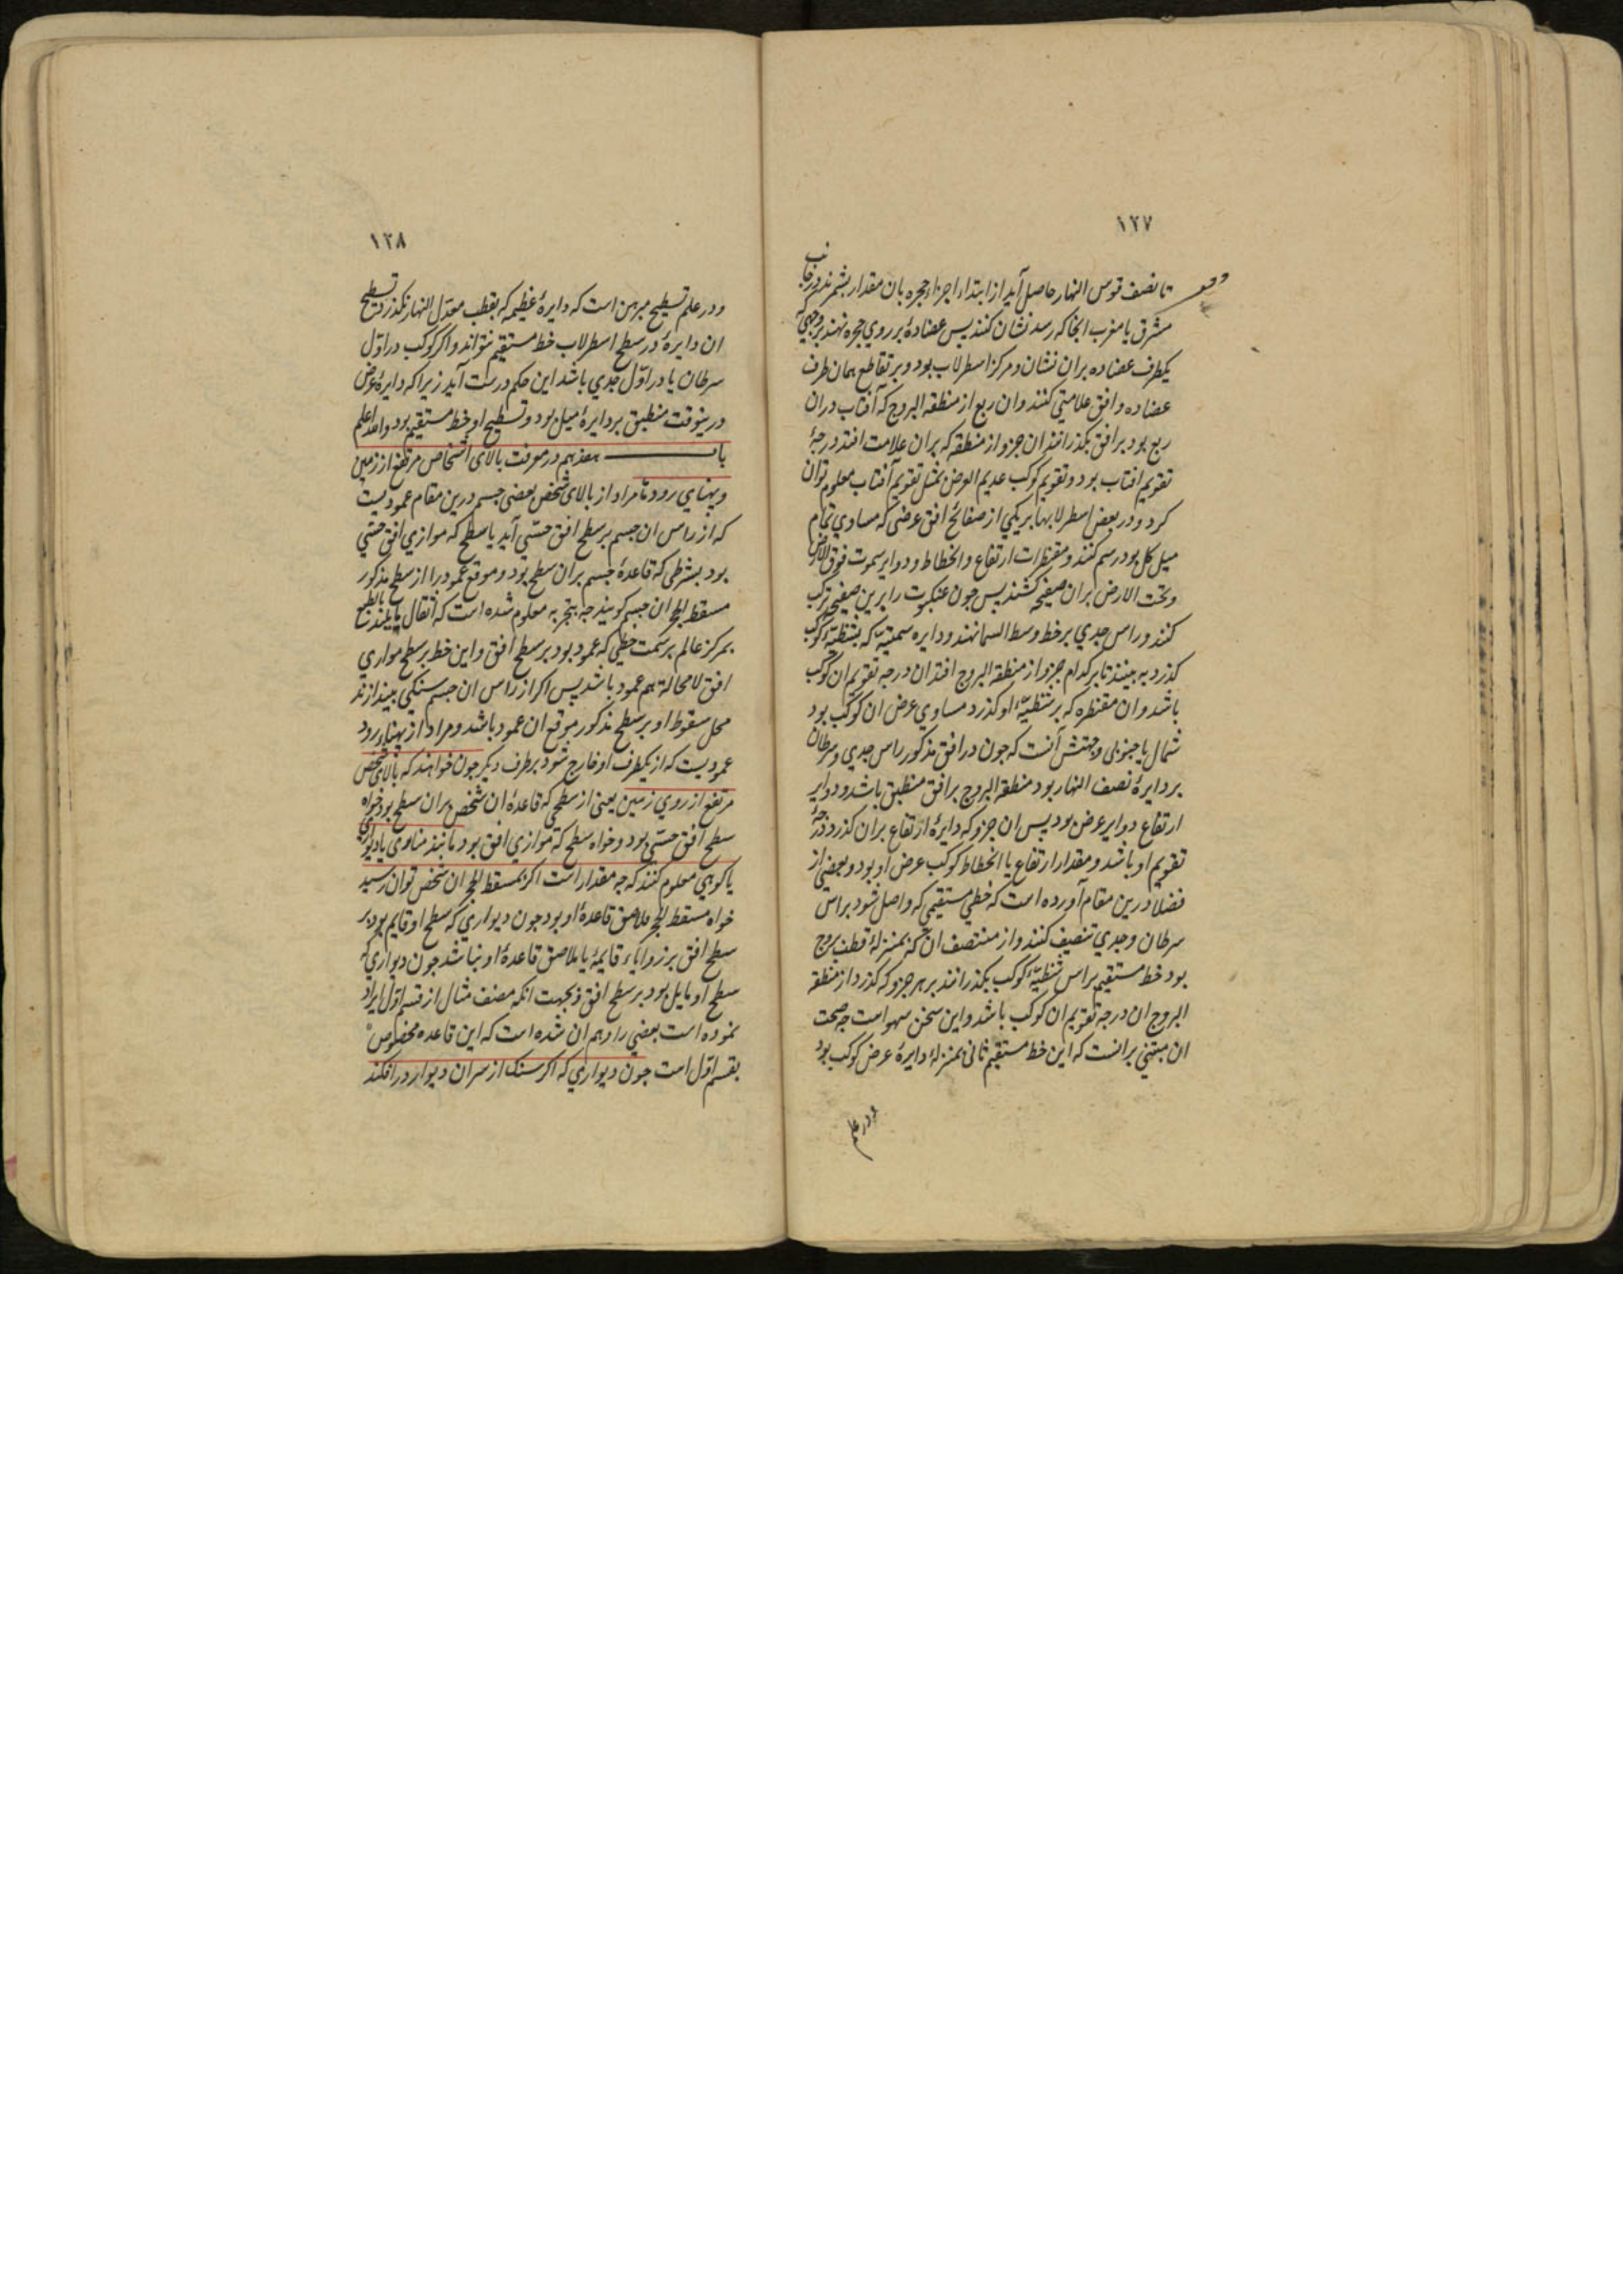 ١٢٧
وقف
تا نصف قوس النهار حاصل آید از ابتداء اجزاء حجره بان مقدار بشمرند در جانب
مشرق یا مغرب انجا که رسد نشان کنند پس عضاده بر روی حجره نهند بر وجهی که
یکطرف عضاده بران نشان و مرکز اسطرلاب بود و بر تقاطع همان طرف
عضاده و افق علامتی کنند و ان ربع از منطقه البروج که آفتاب دران
ربع بود بر افق بکذرانند ان جزو از منطقه که بران علامت افتد درجهٔ
تقویم افتاب بود و تقویم کوکب عدیم العرض بمثل تقویم آفتاب معلوم توان
کرد و در بعض اسطرلابها بر یکی از صفائح افق عرضی که مساوی تمام
میل کل بود رسم کنند و مقنطرات ارتفاع و انحطاط و دوایر سموت فوق الارض
و تحت الارض بران صفیحه کشند پس جون عنکبوت را برین صفیحه ترکیب
کنند و راس جدی بر خط وسط السما نهند و دایره سمتیه که بشظیهٔ کوکب
کذرد به بینند تا بر کدام جزو از منطقه البروج افتد ان درجه تقویم ان کوکب
باشد و ان مقنطره که بر شظیهٔ او کذرد مساوی عرض ان کوکب بود
شمالی یا جنوبی و جهتش آنست که جون در افق مذکور راس جدی و سرطان
بر دایرهٔ نصف النهار بود منطقه البروج بر افق منطبق باشد و دوایر
ارتفاع دوایر عرض بود پس ان جزو که دایرهٔ ارتفاع بران کذرد درجهٔ
تقویم او باشد و مقدار ارتفاع یا انحطاط کوکب عرض او بود و بعضی از
فضلا درین مقام آورده است که خطی مستقیم که واصل شود براس
سرطان و جدی تنصیف کنند و از منتصف ان که بمنزلهٔ قطب بروج
بود خط مستقیم براس شظیهٔ کوکب بکذرانند بر هر جزو که کذرد از منطقه
البروج ان درجه تقویم ان کوکب باشد و این سخن سهو است جه صحت
ان مبتنی برانست که این خط مستقیم ثانی بمنزلهٔ دایرهٔ عرض کوکب بود
و در علم
١٢٨
و در علم تسطیح مبرهن است که دایرهٔ عظیمه که بقطب معدل النهار نکذرد تسطیح
ان دایره در سطح اسطرلاب خط مستقیم نتواند و اکر کوکب در اوّل
سرطان یا در اوّل جدی باشد این حکم درست آید زیرا که دایرهٔ عرض
درینوقت منطبق بر دایرهٔ میل بود و تسطیح او خط مستقیم بود والله اعلم
باب هفدهم در معرفت بالای اشخاص مرتفع از زمین
و پهنای رودها مراد از بالای شخص یعنی جسم درین مقام عمودیست
که از راس ان جسم بر سطح افق حسّی آید یا سطح که موازی افق حسّی
بود بشرطی که قاعدهٔ جسم بران سطح بود و موقع عمود را از سطح مذکور
مسقط الحجر ان جسم کویند جه بتجربه معلوم شده است که اثقال مایلند بالطبع
بمرکز عالم بر سمت خطی که عمود بود بر سطح افق و این خط بر سطح موازی
افق لامحاله هم عمود باشد پس اکر از راس ان جسم سنکی بیندازند
محل سقوط او بر سطح مذکور موقع ان عمود باشد و مراد از پهناء رود
عمودیست که از یکطرف او خارج شود بر طرف دیکر جون خواهند که بالای شخص
مرتفع از روی زمین یعنی از سطحی که قاعدهٔ ان شخص بران سطح بود خواه
سطح افق حسّی بود و خواه سطح که موازی افق بود مانند مناری یا دیواری
یا کوهی معلوم کنند که جه مقدار است اکر بمسقط الحجر ان شخص توان رسید
خواه مسقط الحجر ملاصق قاعدهٔ او بود جون دیواری که سطح او قایم بود بر
سطح افق بر زوایاء قایمه یا ملاصق قاعدهٔ او نباشد جون دیواری که
سطح او مایل بود بر سطح افق و بجهت انکه مصنف مثال از قسم اوّل ایراد
نموده است بعضی را وهم ان شده است که این قاعده مخصوص
بقسم اوّل است جون دیواری که اکر سنک از سر ان دیوار در افکند